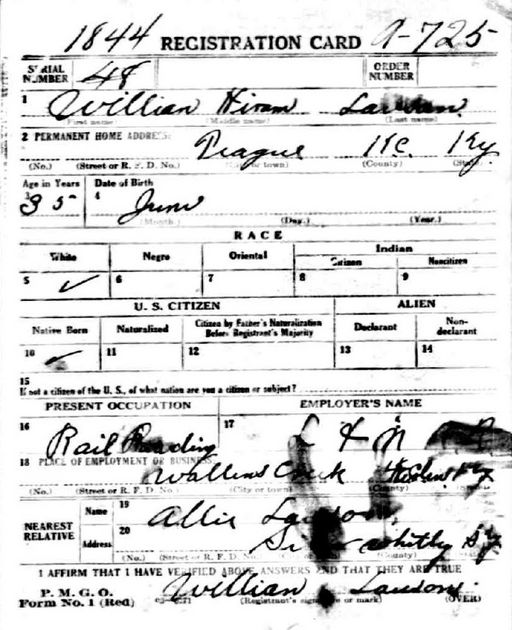 1844 REGISTRATION CARD A-725
SERIAL NUMBER 48 ORDER NUMBER
1 Willian Hiram Lawson
(First name) (Middle name) (Last name)
2 PERMANENT HOME ADDRESS:
Prague Ky.
(No.) (Street or R. F. D. No.) (City or town) (County) (State)
Age in Years Date of Birth
3 35 4 June
(Month.) (Day.) (Year.)
RACE
White Negro Oriental Indian
Citizen Noncitizen
5 ✓ 6 7 8 9
U. S. CITIZEN ALIEN
Native Born Naturalized Citizen by Father's Naturalization Before Registrant's Majority Declarant Non-declarant
10 ✓ 11 12 13 14
15
If not a citizen of the U. S., of what nation are you a citizen or subject?
PRESENT OCCUPATION EMPLOYER'S NAME
16 Rail Roading 17 L & N
18 PLACE OF EMPLOYMENT OR BUSINESS
Wallins Creek Ky
(No.) (Street or R. F. D. No.) (City or town) (County)
NEAREST RELATIVE Name 19 Allie Lawson
Address 20 Whitley Ky
(No.) (Street or R. F. D. (County)
I AFFIRM THAT I HAVE VERIFIED ABOVE ANSWERS AND THAT THEY ARE TRUE
P. M. G. O.
Form No. 1 (Red) Willian Lawson
(Registrant's signature or mark) (OVER)